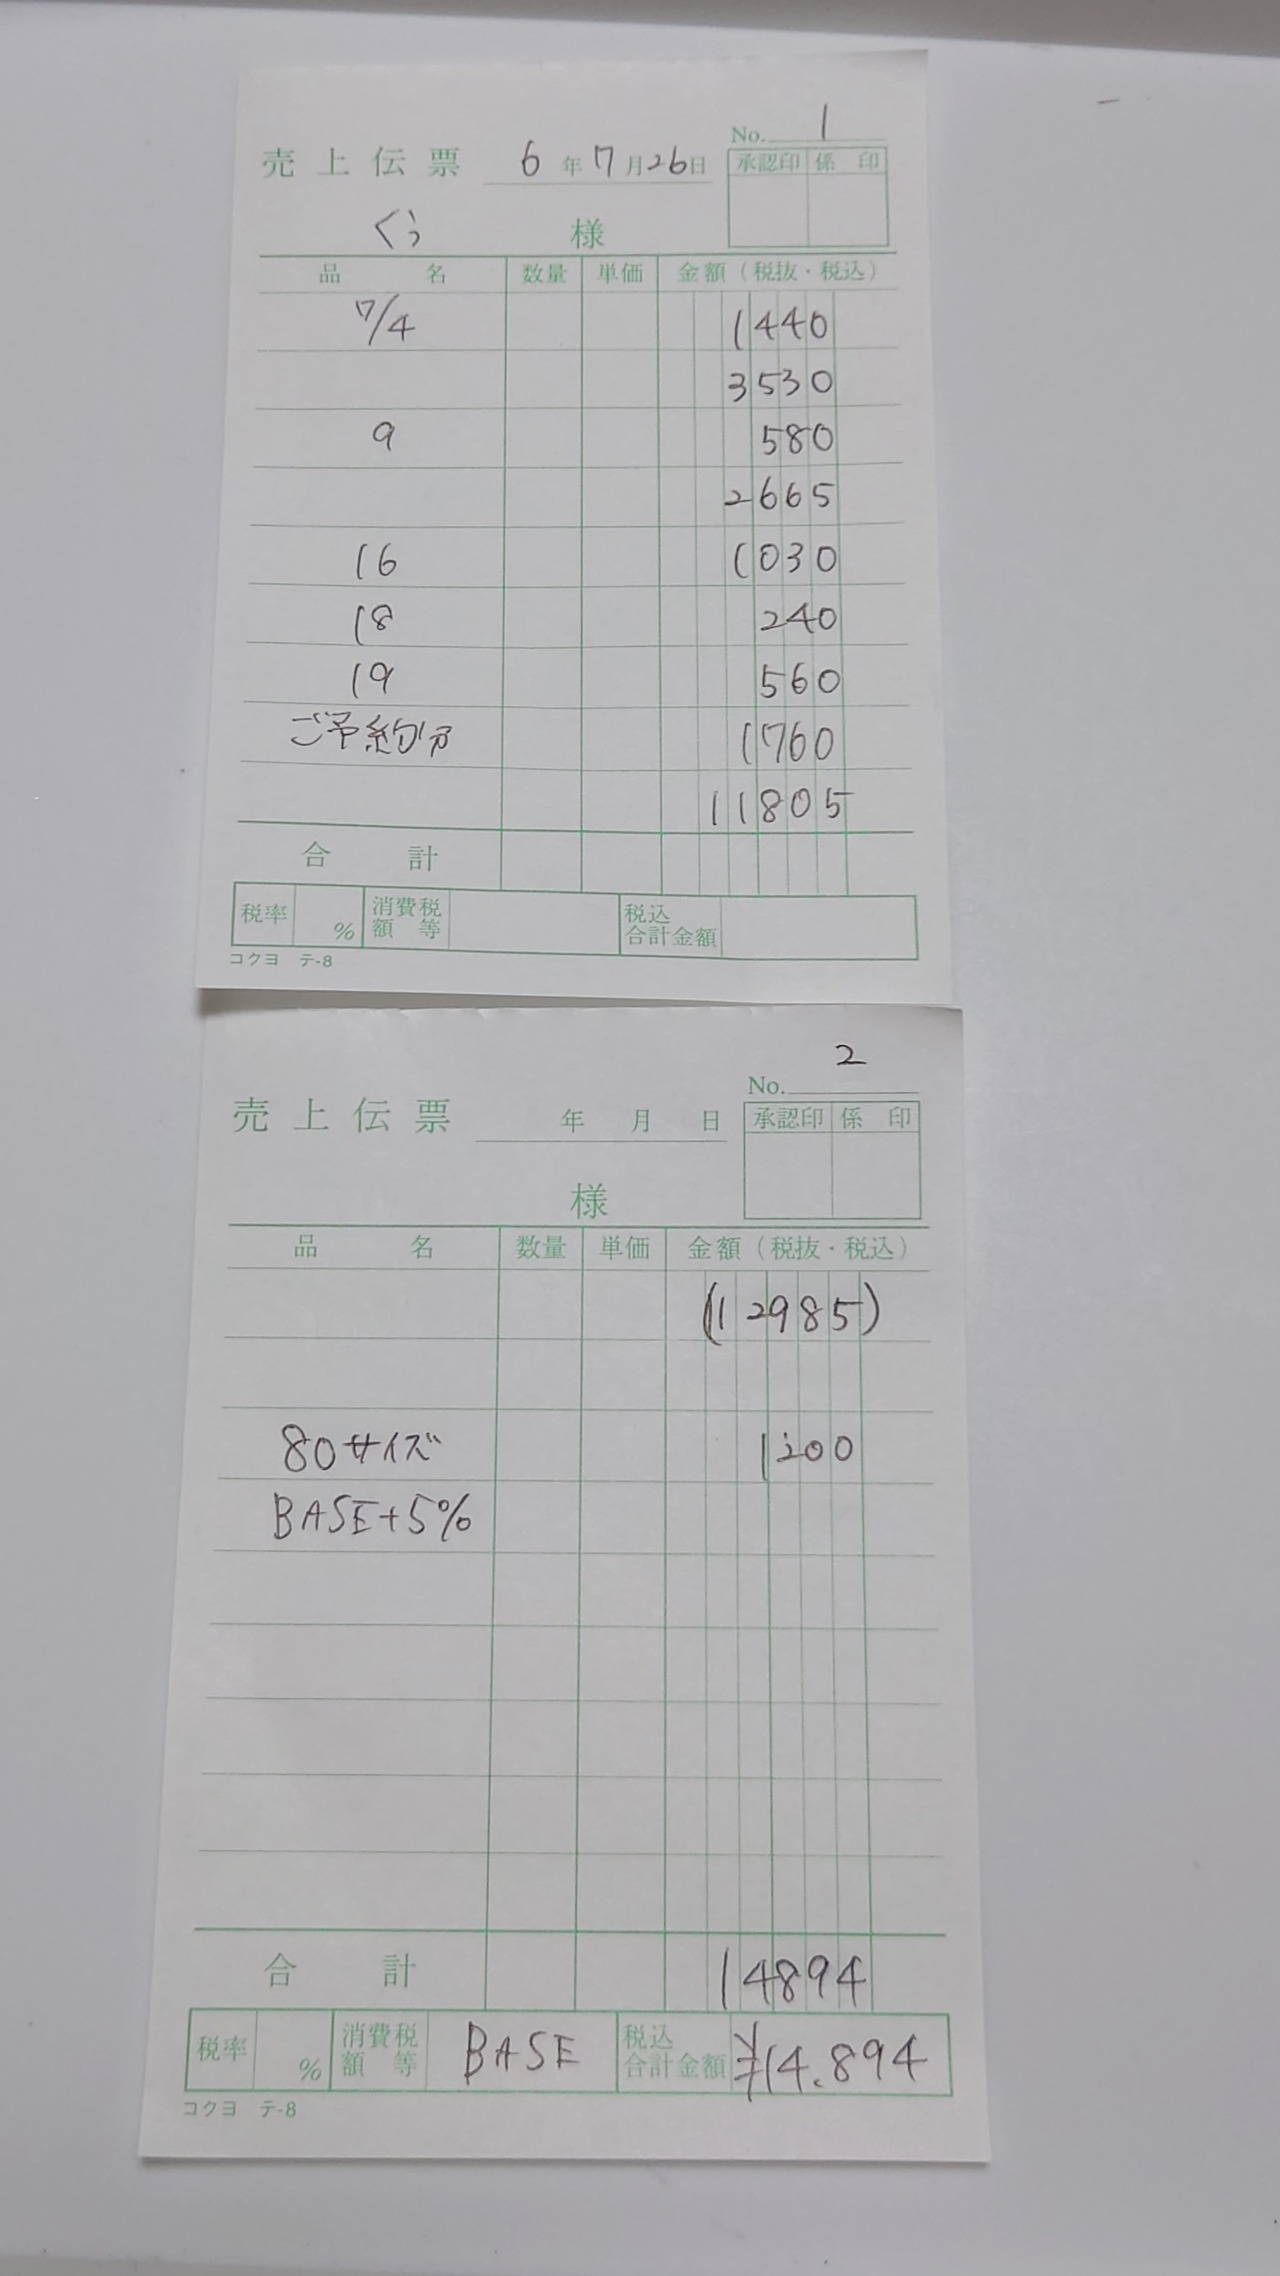 No. 1
売上伝票 6年7月26日
承認印 係印
くう 様
品名 数量 単価 金額（税抜・税込）
7/4 1440
3530
9 580
2665
16 1030
18 240
19 560
ご予約分 1760
11805
合計
税率 % 消費税額等 税込合計金額
コクヨ テ-8
2
No.
売上伝票 年 月 日
承認印 係印
様
品名 数量 単価 金額（税抜・税込）
(12985)
80サイズ 1200
BASE+5%
合計 14894
税率 % 消費税額等 BASE 税込合計金額 ¥14.894
コクヨ テ-8